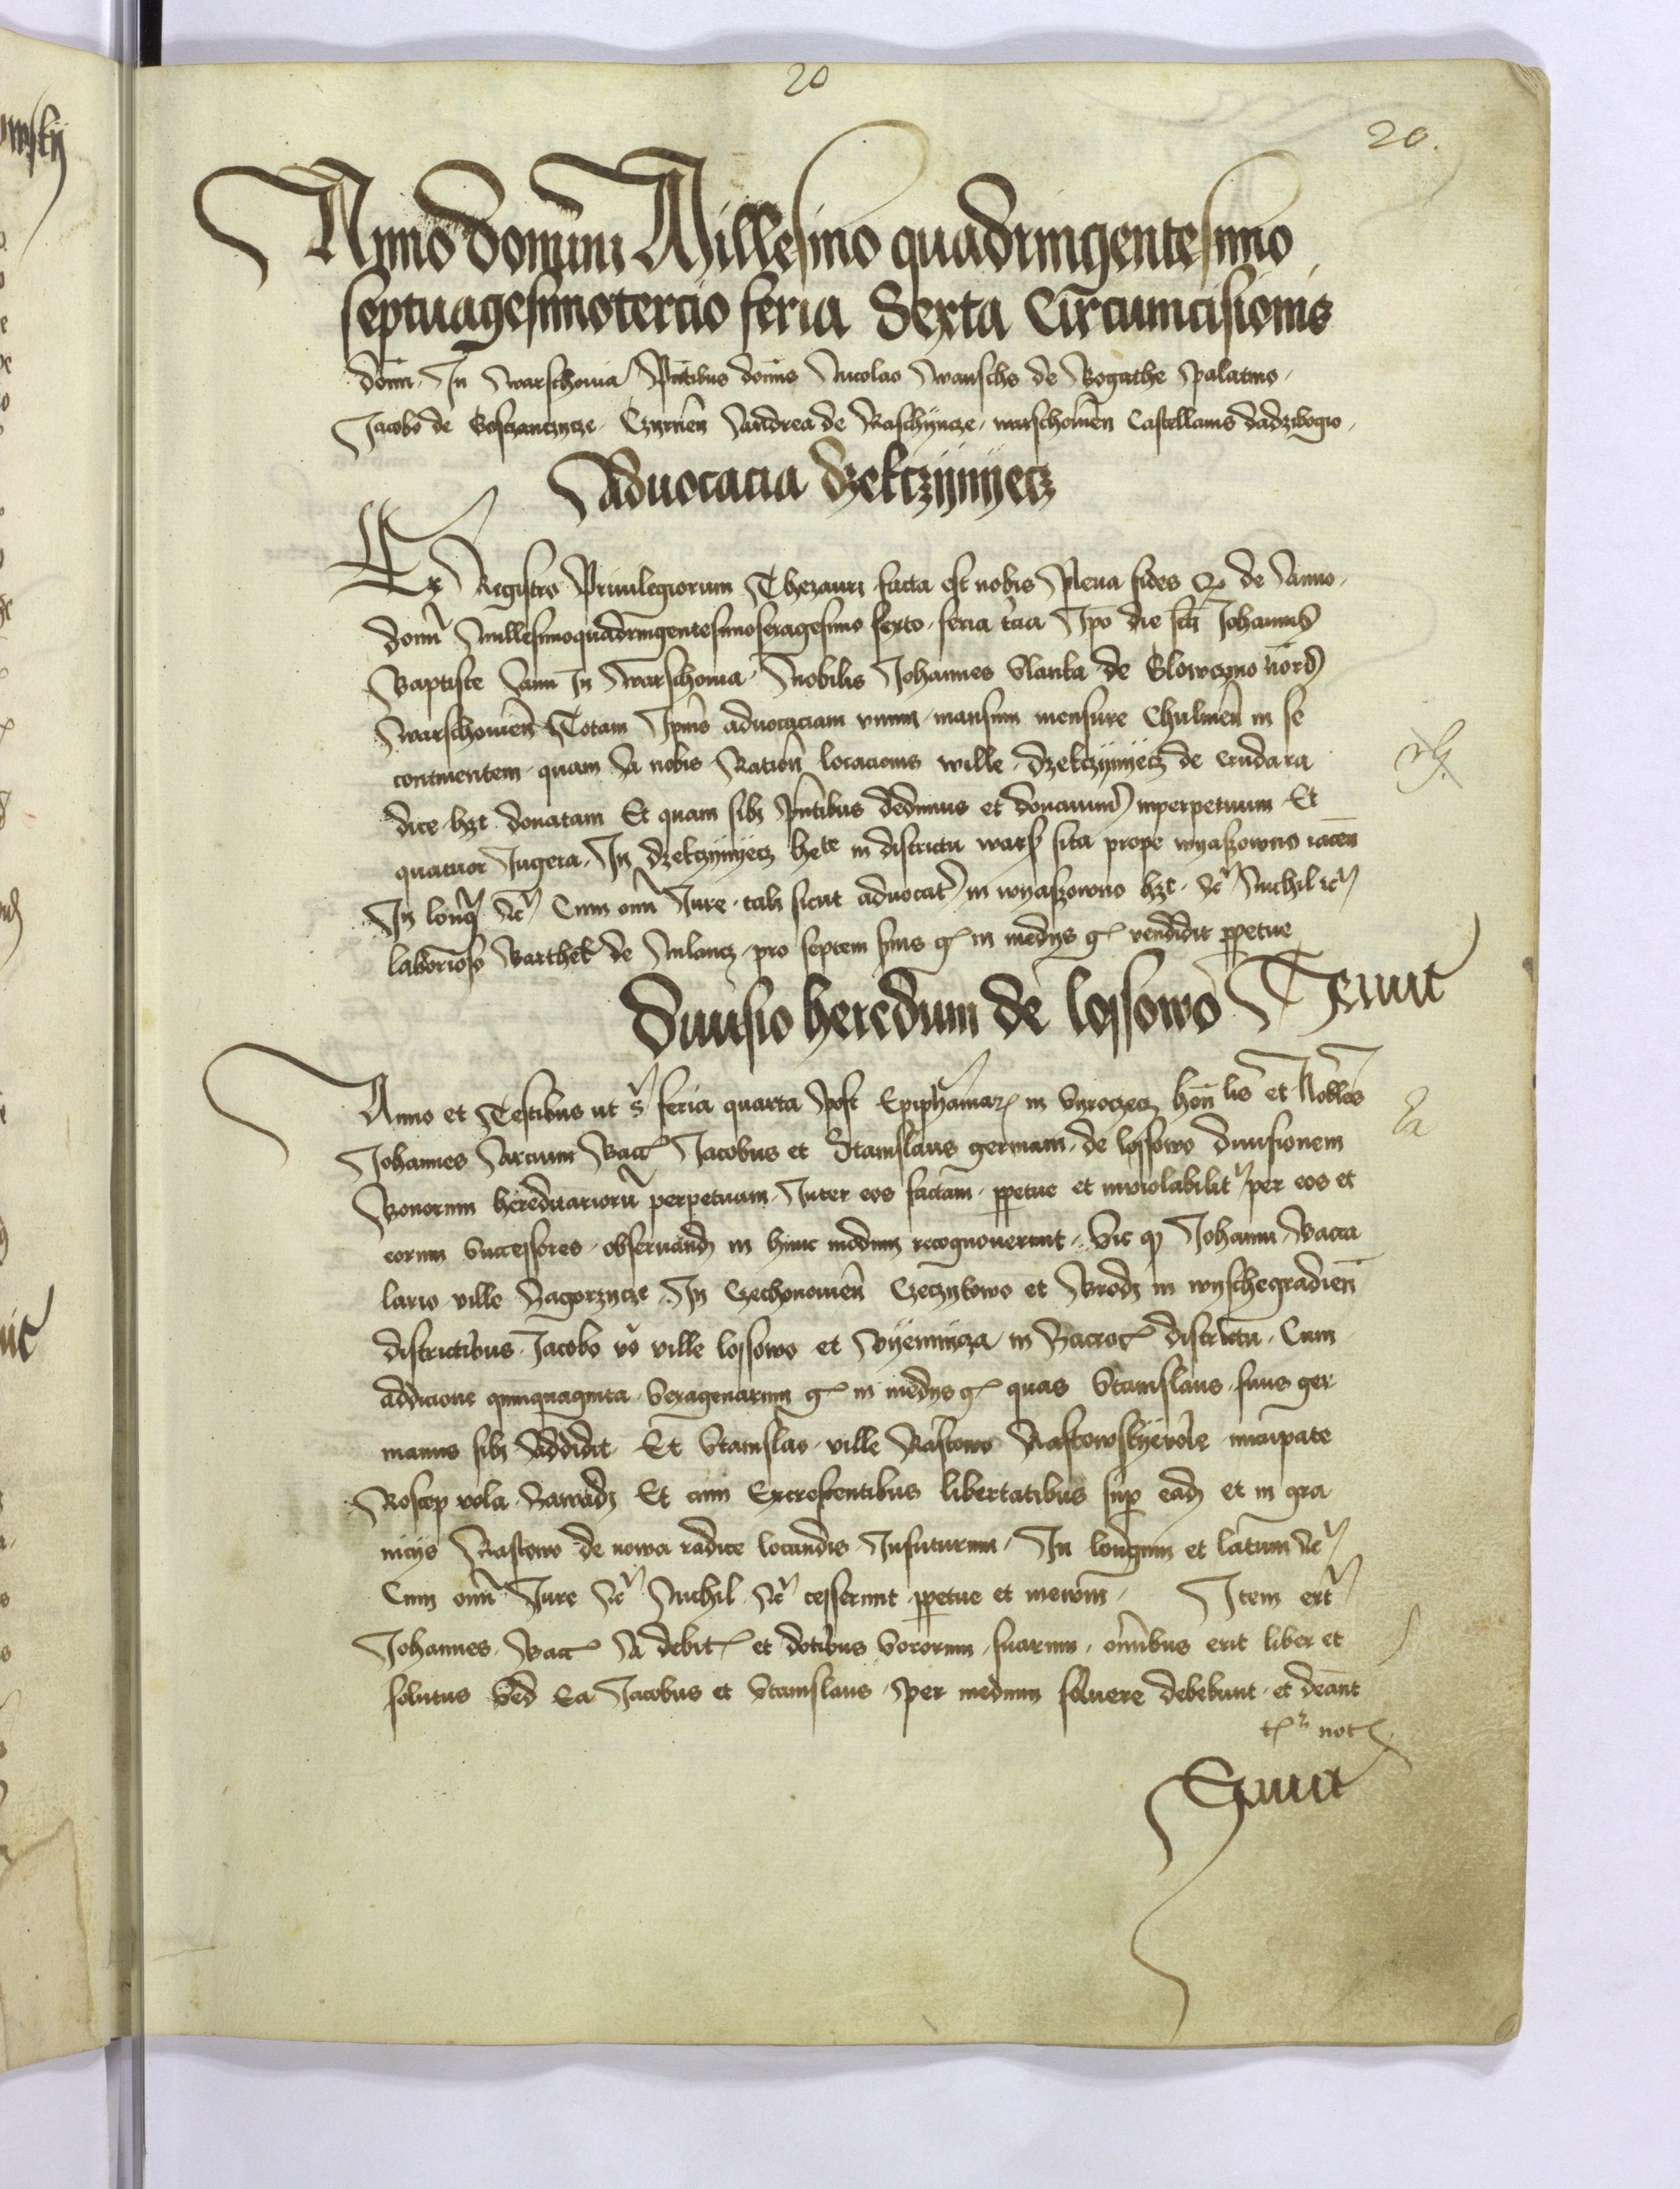 20
20.
Anno domini Millesimo quadringentesimo
septuagesimotercio feria Sexta Circumcisionis
domi. In Warschouia Pntibus domis Nicolao Wansche de Bogathe Palatino.
Jacobo de Goschanczicze. Czyrnen Andrea de Raschyncze. warschouien Castellanis dadzibogio.
Aduocacia dzekczÿnÿecz
Ex Registro Priuilegiorum Thezauri facta est nobis Plena fides Q de Anno.
domi Millesimoquadringentesimosexagesimo sexto. feria tcia Ipo die sti Johannis
Baptiste Sanci In Warschouia Nobilis Johannes Slanka de Glowczyno
Warschouien Totam Ipius aduocaciam vnum mansum mensure Chulmen in se
continentem quam a nobis Ration locacionis wille. dzekczÿnÿecz de cruda ra
dice hzt donatam Et quam sibi pntibus dedimus et donauimus inperpetuum Et
quatuor Jugera. In dzekczÿnÿecz in districtu wars sita prope wyaszowno iacen
In long etc Cum omi Jure tali sicut aduocatus in wyaszowno hzt. etc Nichil etc
laborioso Barthek de Mlancz pro septem sexs g in medys g vendidit ppetue
diuisio heredum de lossowo Seruit
Anno et Testibus ut s feria quarta Post Epiphaniar in Vyrozecz hon lis et Nobles
Johannes Arcium Bacc Jacobus et Stanislaus germani. de lossowo diuisionem
Bonorum hereditarioru perpetuam. Inter eos factam. ppetue et inuiolabilit per eos et
eorum Successores. obseruand in hunc modum recognouerunt. Sic q Johanni Bacca
lario ville Zagorzycze In Czechonouien Czeczykowo et Brodi in wyschegradien
districtibus. Jacobo vo ville lossowo et in Zacroc districtu. Cum
addicione quinquaginta Sexagenarum g in medys g quas Stanislaus. suus ger
manus sibi Addidit. Et Stanislao. ville Rastowo Rastowskÿewole nucupate
vola Zawady Et cum Excrescentibus libertatibus sup eadem et in gra
nicys Rastowo de nowa radice locandis Infuturum. In longum et latum etc
Cum omi Jure etc Nichil etc cesserunt ppetue et inewm. Item
Johannes. Bacc A debit et dotibus Sororum. suarum. omibus erit liber et
solutus Sed Ea Jacobus et Stanislaus. per medium soluere debebunt et
not
Seruit